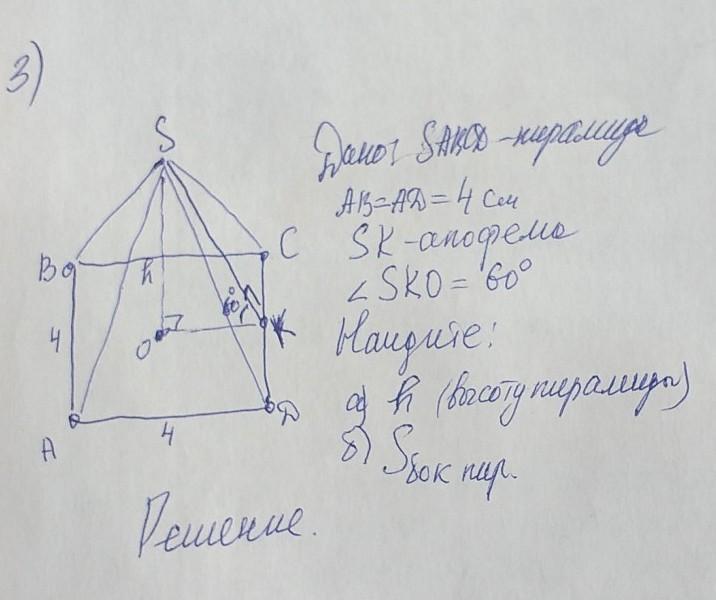 3)
S
B
C
h
60°
4
O
K
A
4
D
Дано: SABCD-пирамида
AB=AD=4 см
SK-апофема
∠SKO=60°
Найдите:
а) h (высоту пирамиды)
б) Sбок пир.
Решение.